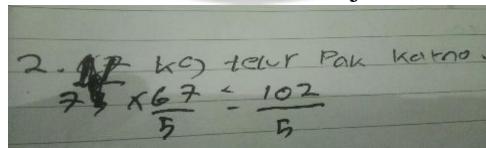 2. kg telur Pak Karno.
7 × 67/5 = 102/5